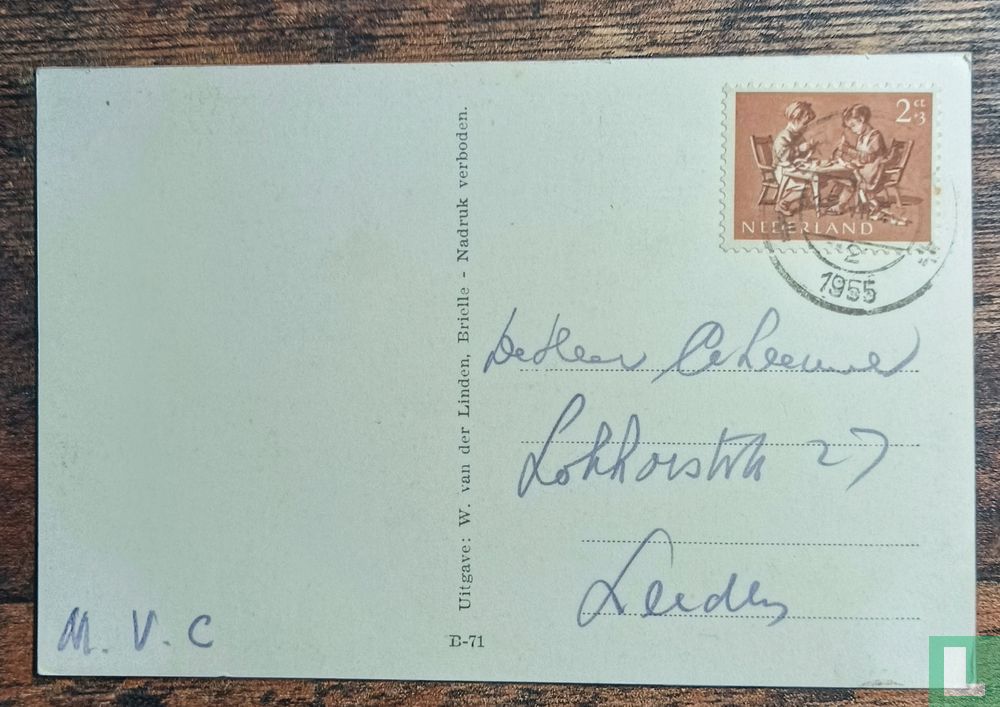 Uitgave: W. van der Linden, Brielle - Nadruk verboden.
B-71
M. V. C
2 ct
+3
NEDERLAND
2
1955
De Heer
Lokhorststr 27
Leiden
L